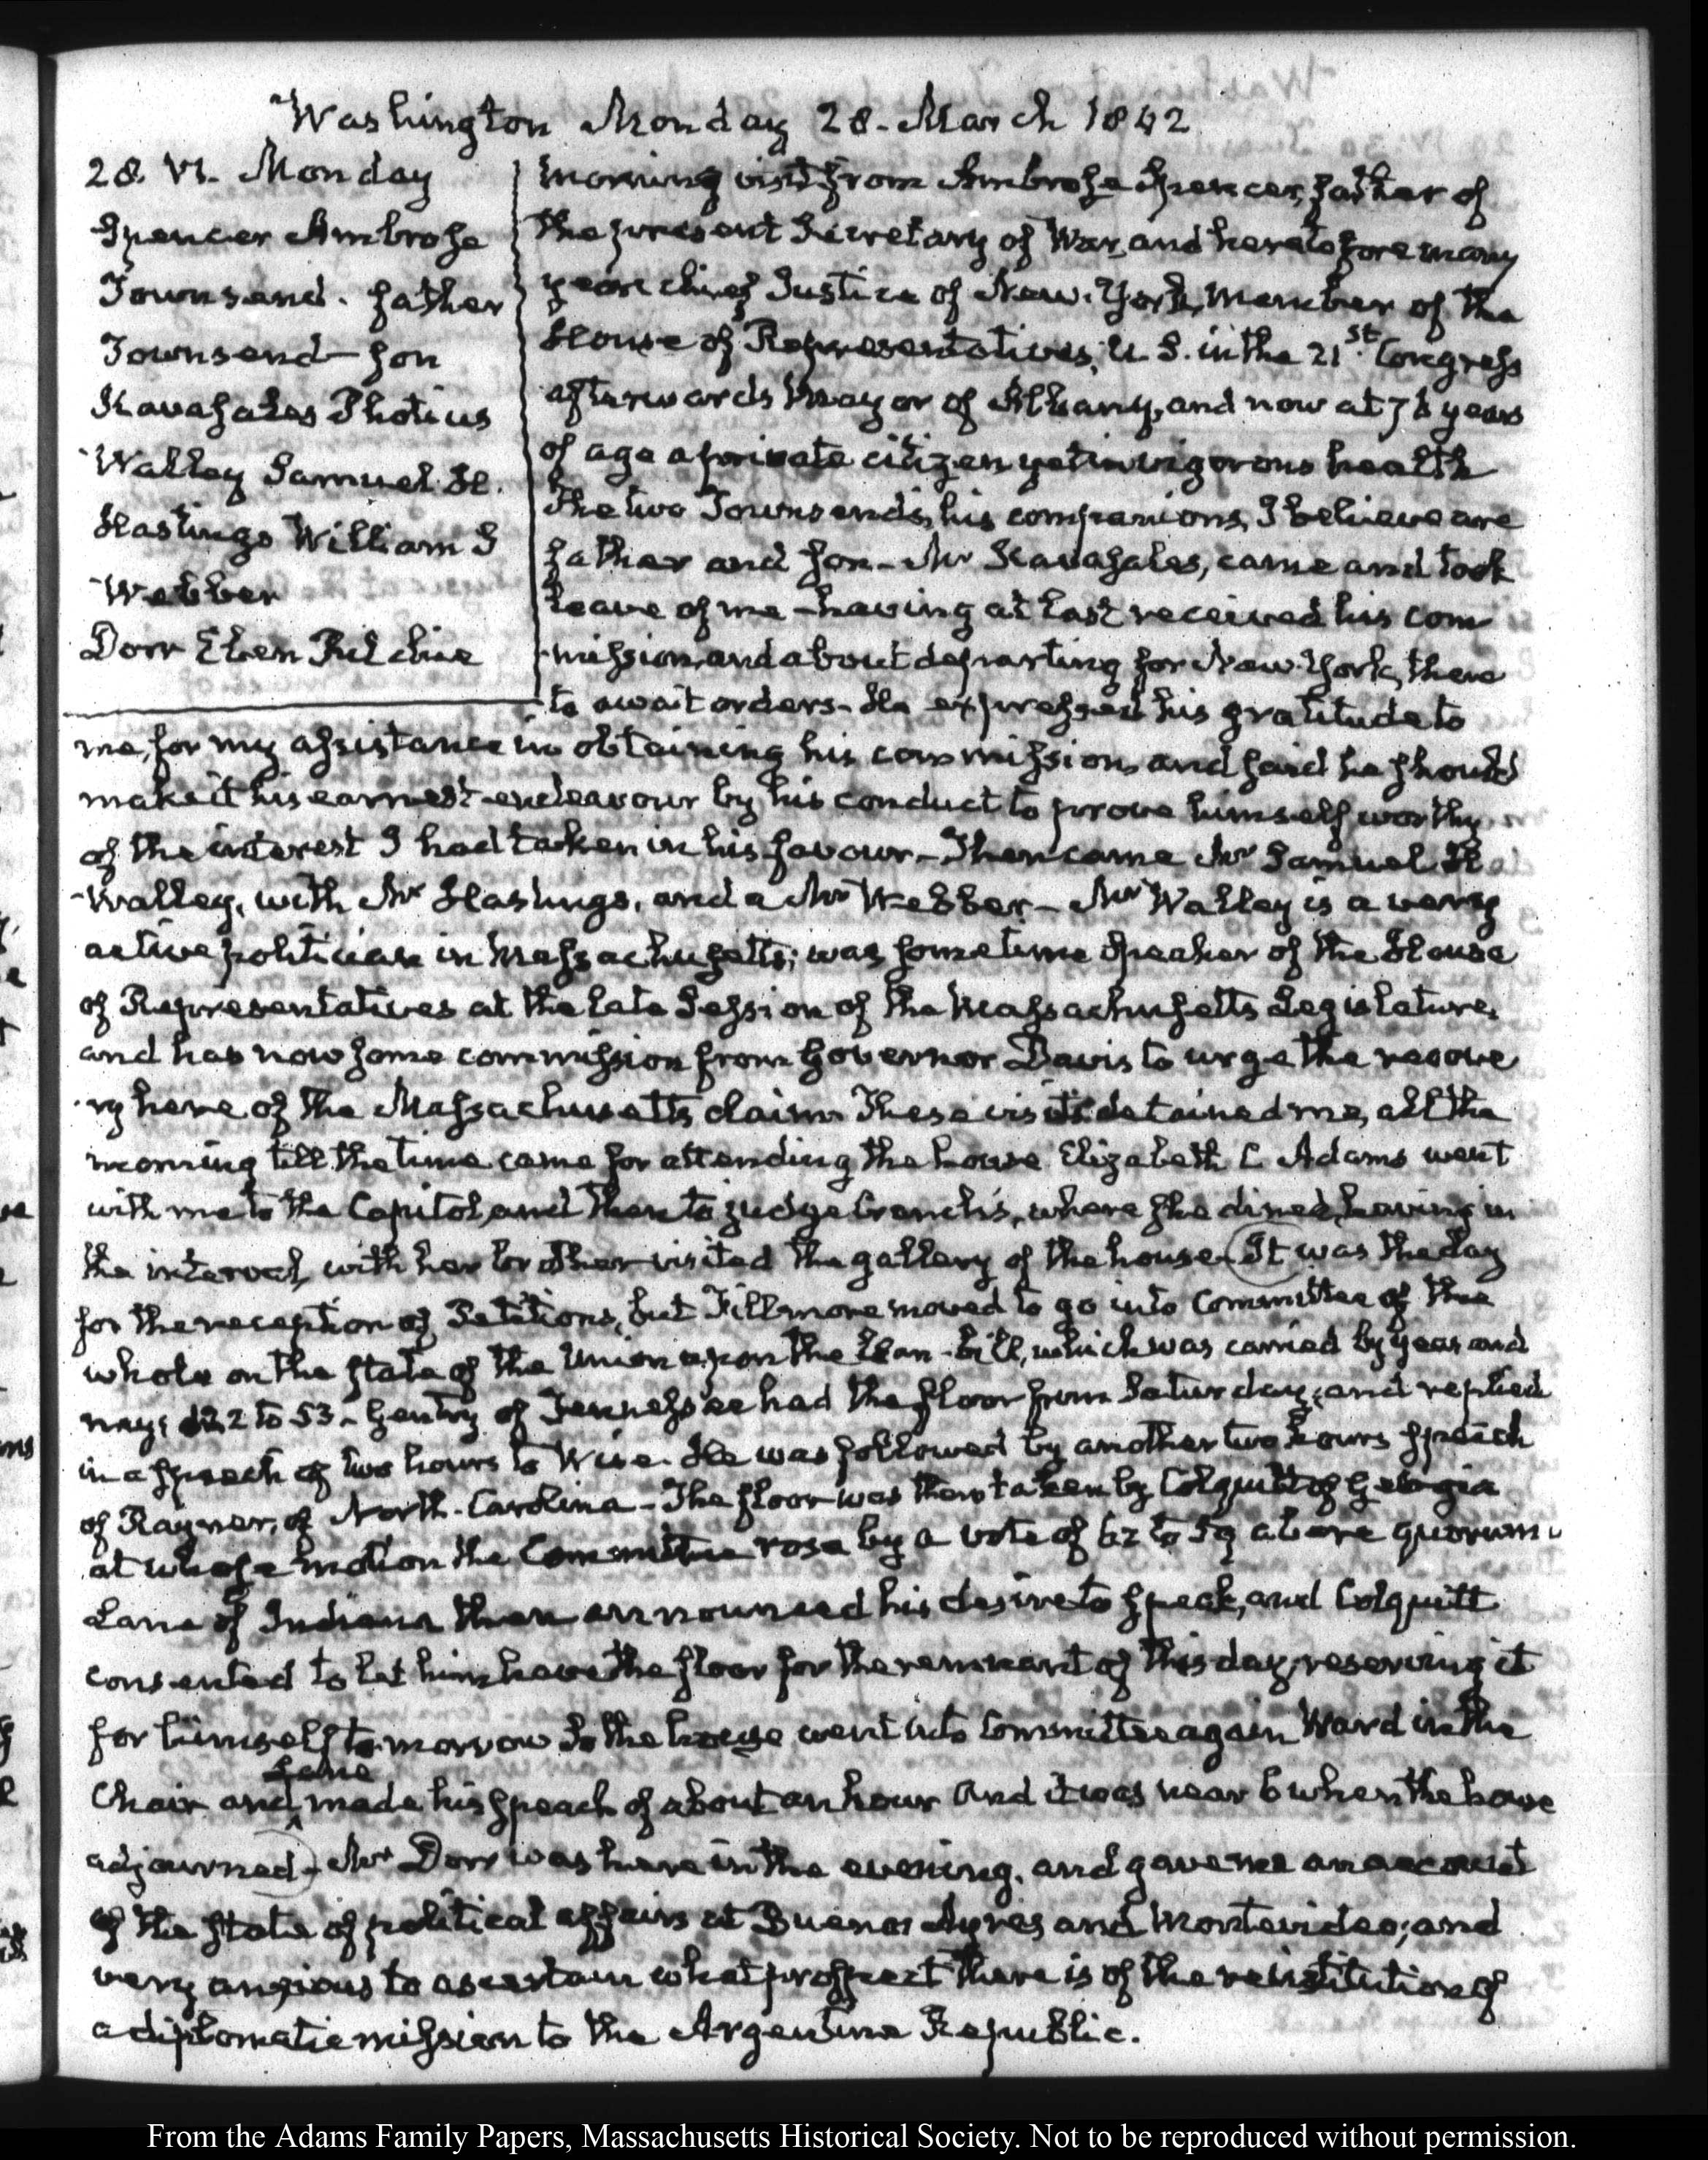 Washington Monday 28. March 1842
28. VI. Monday
Spencer Ambrose
Townsend. father
Townsend - son
Kavasales Photius
Walley Samuel H.
Hastings William S
Webber
Dorr Eben Ritchie
Morning visit from Ambrose Spencer, father of
the present Secretary of War, and heretofore many
years chief Justice of New-York, Member of the
House of Representatives, U. S. in the 21st. Congress
afterwards Mayor of Albany, and now at 76 years
of age a private citizen yet in vigorous health
The two Townsends, his companions, I believe are
father and son - Mr Kavasales, came and took
leave of me - having at last received his com
mission, and about departing for New-York, there
to await orders - He expressed his gratitude to
me, for my assistance in obtaining his commission, and said he should
make it his earnest endeavour by his conduct to prove himself worthy
of the interest I had taken in his favour - Then came Mr Samuel H
Walley, with Mr Hastings, and a Mr Webber - Mr Walley is a very
active politician in Massachusetts; was sometime Speaker of the House
of Representatives at the late Session of the Massachusetts Legislature,
and has now some commission from Governor Davis to urge the recove
ry here of the Massachusetts claim. These visits detained me, all the
morning till the time came for attending the house Elizabeth C Adams went
with me to the Capitol, and then to judge Cranch's, where she dined, having in
the interval, with her brother visited the gallery of the house - It was the day
for the reception of Petitions, but Fillmore moved to go into Committee of the
whole on the state of the Union upon the Loan-bill, which was carried by yeas and
nays 122 to 53 - Gentry of Tennessee had the floor from Saturday, and replied
in a speech of two hours to Wise. He was followed by another two hours speech
of Rayner, of North-Carolina - The floor was then taken by Colquitt of Georgia
at whose motion the Committee rose by a vote of 62 to 59 a bare quorum.
Lane of Indiana then announced his desire to speak, and Colquitt
consented to let him have the floor for the remnant of this day, reserving it
for himself to-morrow So the house went into Committee again Ward in the
Lane
Chair and made his speech of about an hour and it was near 6 when the house
adjourned - Mr Dorr was here in the evening, and gave me an account
of the state of political affairs at Buenos Ayres and Montevideo; and
very anxious to ascertain what prospect there is of the reinstitution of
a diplomatic mission to the Argentine Republic.
From the Adams Family Papers, Massachusetts Historical Society. Not to be reproduced without permission.